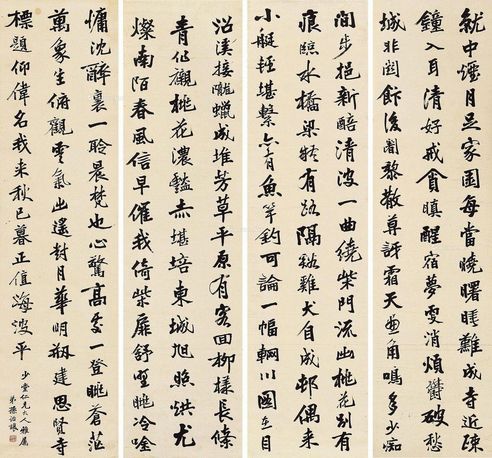 沿溪接蠟成堆芳草平原有客回柳樣長條
青似觀桃花濃豔赤堪培東城旭照烘尤
燦南陌春風信早催我倚柴扉舒野眺冷唫
間步挹新醅清波一曲繞柴門流出桃花別有
痕臨水橋梁有路隔谿雞犬自成邨偶來
小艇輕堪繫魚竿釣可論一幅輞川圖在目
就中煙月足家園每當曉曙睡難成寺近疎
鐘入耳清好戒貪瞋醒宿夢更消煩鬱破愁
城非關飰後闍黎散訝霜天画角鳴多少痴
慵沈醉裏一聆晨梵也心驚高一登眺蒼茫
萬象生俯觀雲氣出遙對月華明建思賢寺
標題仰偉名我來秋已暮正值海波平
少堂仁兄大人雅屬
弟孫詒讓